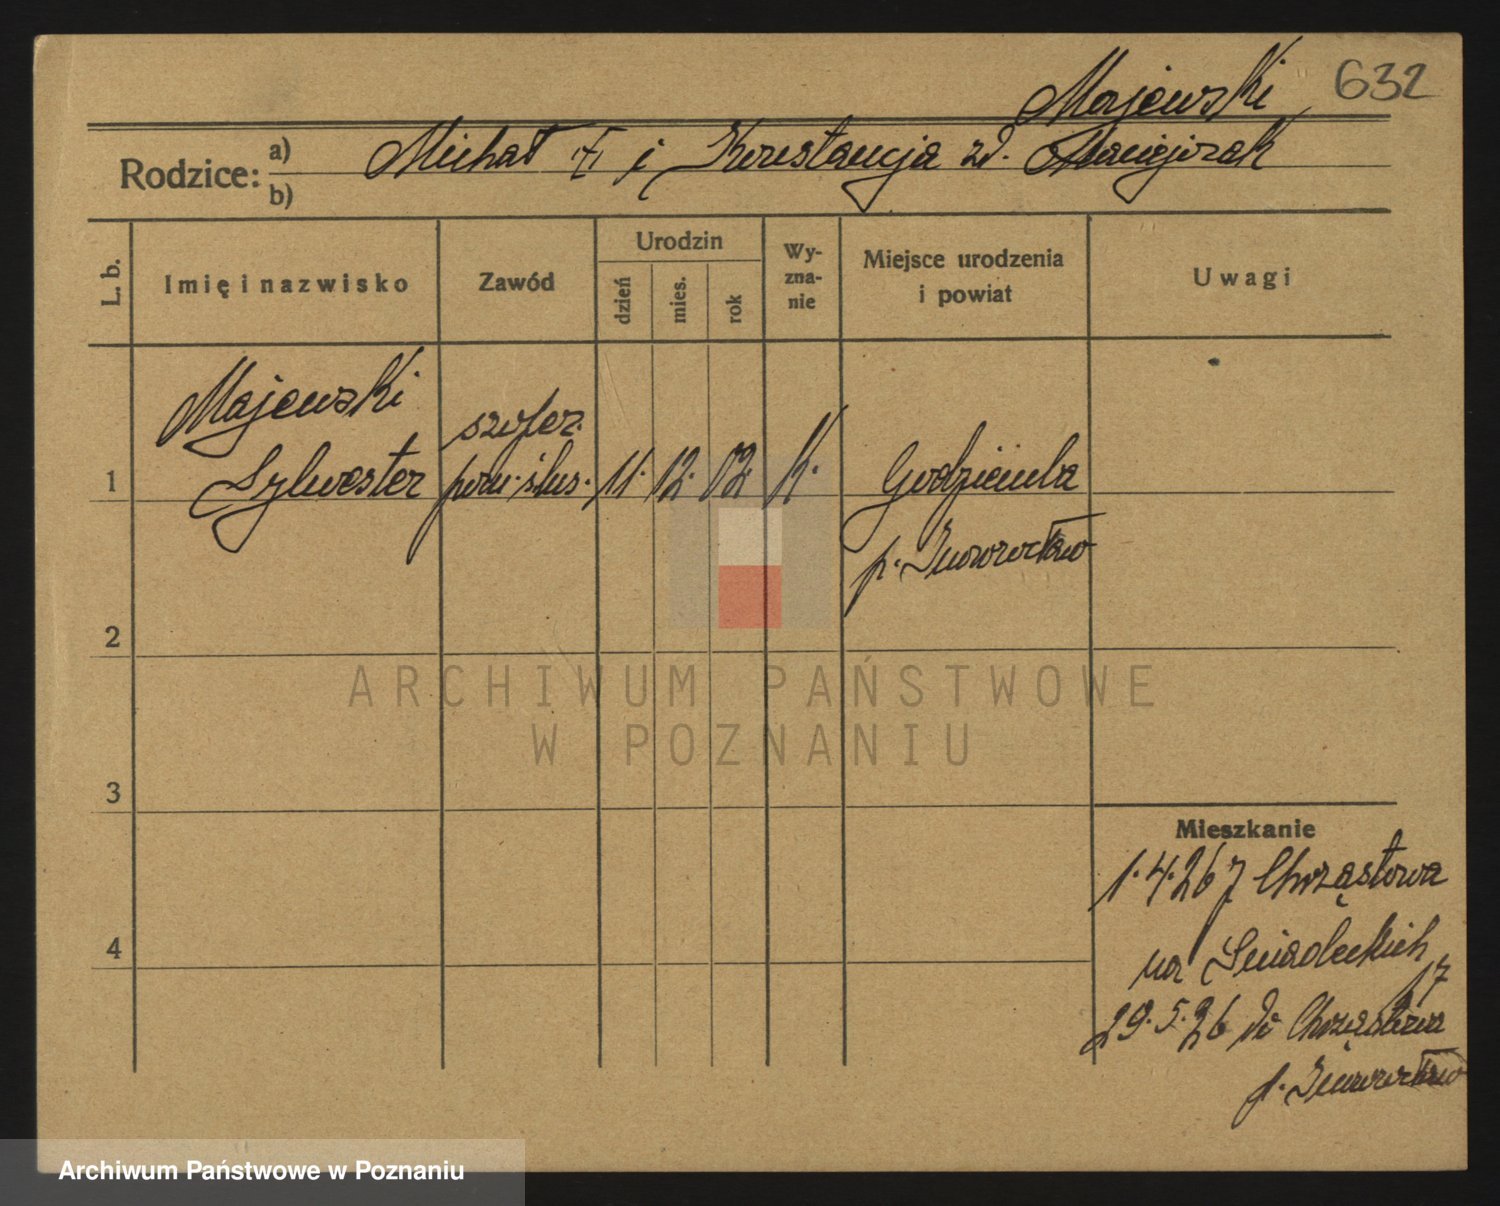 Majewski 632
Rodzice: a) b) Michał i Konstancja zd. Maciejczak
L. b.
Imię i nazwisko
Zawód
Urodzin
dzień
mies.
rok
Wy-
zna-
nie
Miejsce urodzenia
i powiat
Uwagi
Majewski
Sylwester
szofer.
pom. ślus.
11. 12. 02. k.
Godzięba
p. Inowrocław
1
2
3
4
Mieszkanie
1.4.26 z Chrząstowa
na Śniadeckich
17
29.5.26 do Chrząstowa
p. Inowrocław
ARCHIWUM PAŃSTWOWE
W POZNANIU
Archiwum Państwowe w Poznaniu